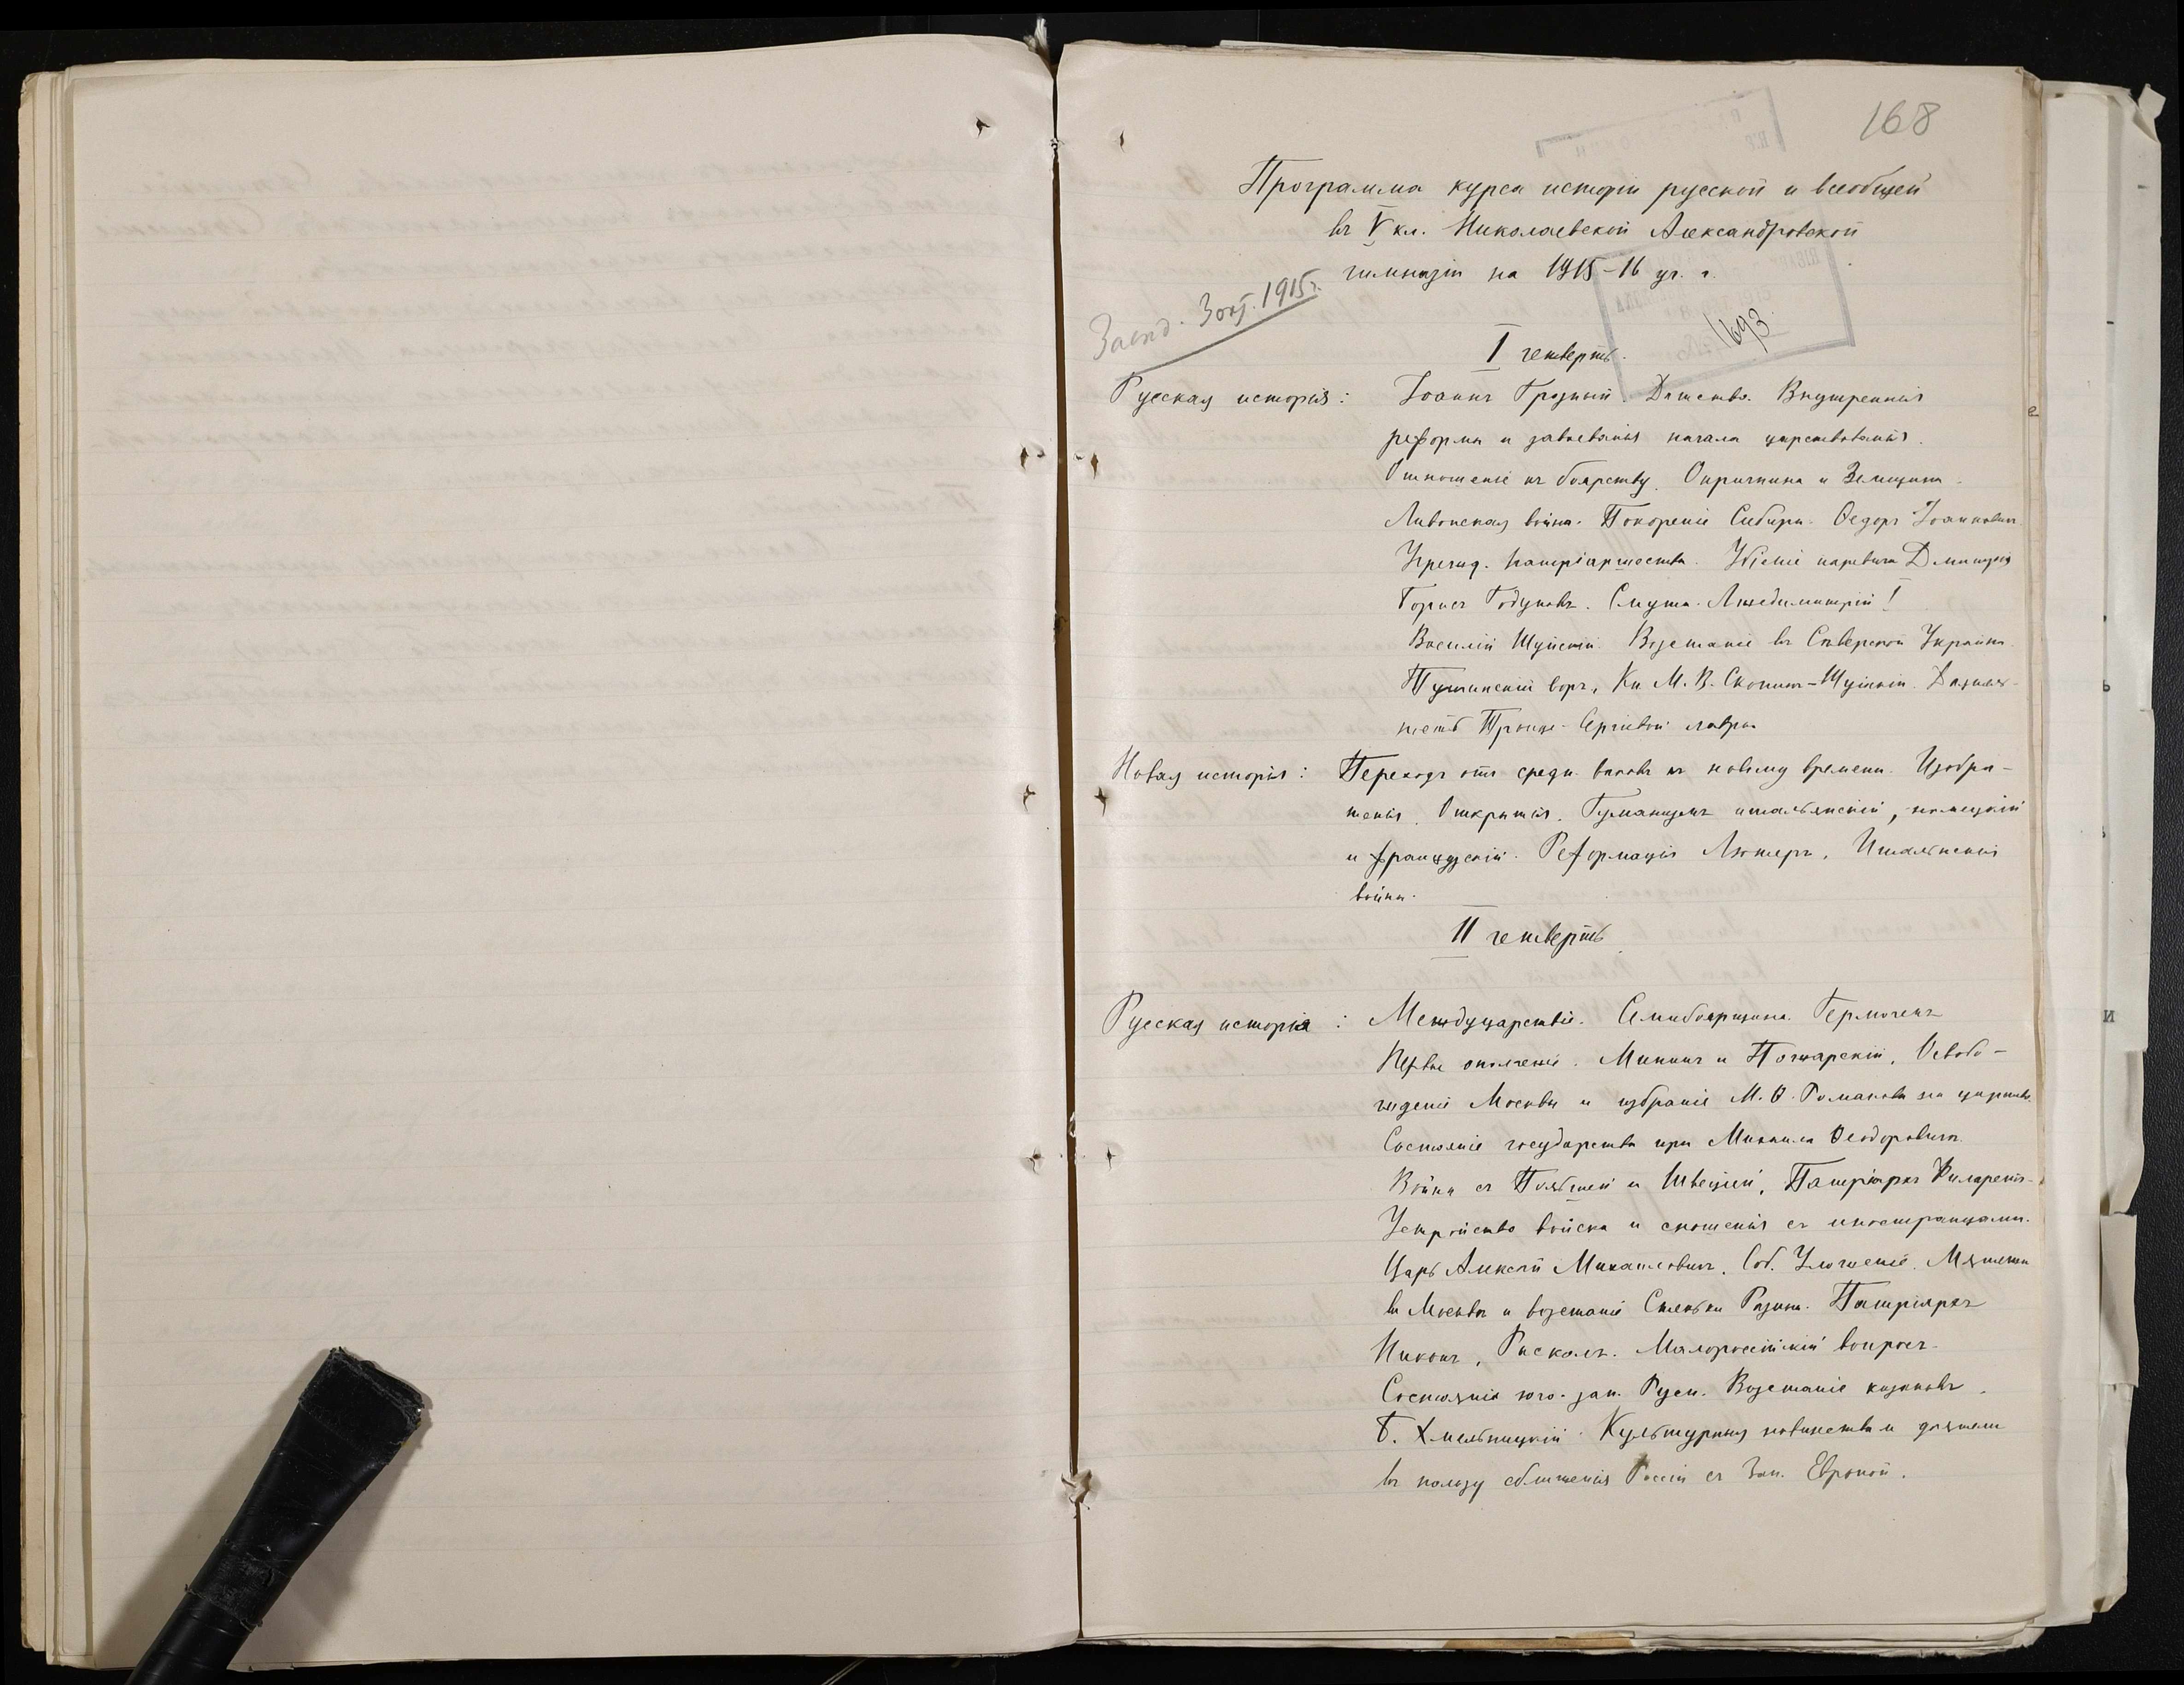 168
Программа курса исторіи русской и всеобщей
въ V кл. Николаевской Александровской
гимназіи на 1915-16 уч. г.
3 окт. 1915 г.
1693
I четверть.
Русская исторія: Іоаннъ Грозный. Дѣтство. Внутреннія
реформы и завоеванія начала царствованія.
Отношеніе къ боярству. Опричнина и Земщина.
Ливонская война. Покореніе Сибири. Ѳедоръ Іоанновичъ.
Учрежд. патріаршества. Убіеніе царевича Дмитрія
Борисъ Годуновъ. Смута. Лжедимитрій I
Василій Шуйскій. Возстаніе въ Сѣверской Украйнѣ.
Тушинскій воръ, Кн. М. В. Скопинъ-Шуйскій.
Троице-Сергіевой лавры
Новая исторія: Переходъ отъ средн. вѣковъ къ новому времени. Изобрѣ-
тенія. Открытія. Гуманизмъ итальянскій, нѣмецкій
и французскій. Реформація Лютеръ. Итальянскія
войны.
II четверть
Русская исторія: Междуцарствіе. Семибоярщина. Гермогенъ
Первое ополченіе. Мининъ и Пожарскій. Освобо-
жденіе Москвы и избраніе М. Ѳ. Романова на царство.
Состояніе государства при Михаилѣ Ѳеодоровичѣ.
Войны съ Польшей и Швеціей, Патріархъ Филаретъ.
Устройство войска и сношенія съ иностранцами.
Царь Алексѣй Михайловичъ. Соб. Уложеніе. Мятежи
въ Москвѣ и возстаніе Стеньки Разина. Патріархъ
Никонъ, Расколъ. Малороссійскій вопросъ.
Состояніе юго-зап. Руси. Возстаніе казаковъ.
Б. Хмельницкій. Культурныя новшества и дѣятели
въ пользу сближенія Россіи съ Зап. Европой.